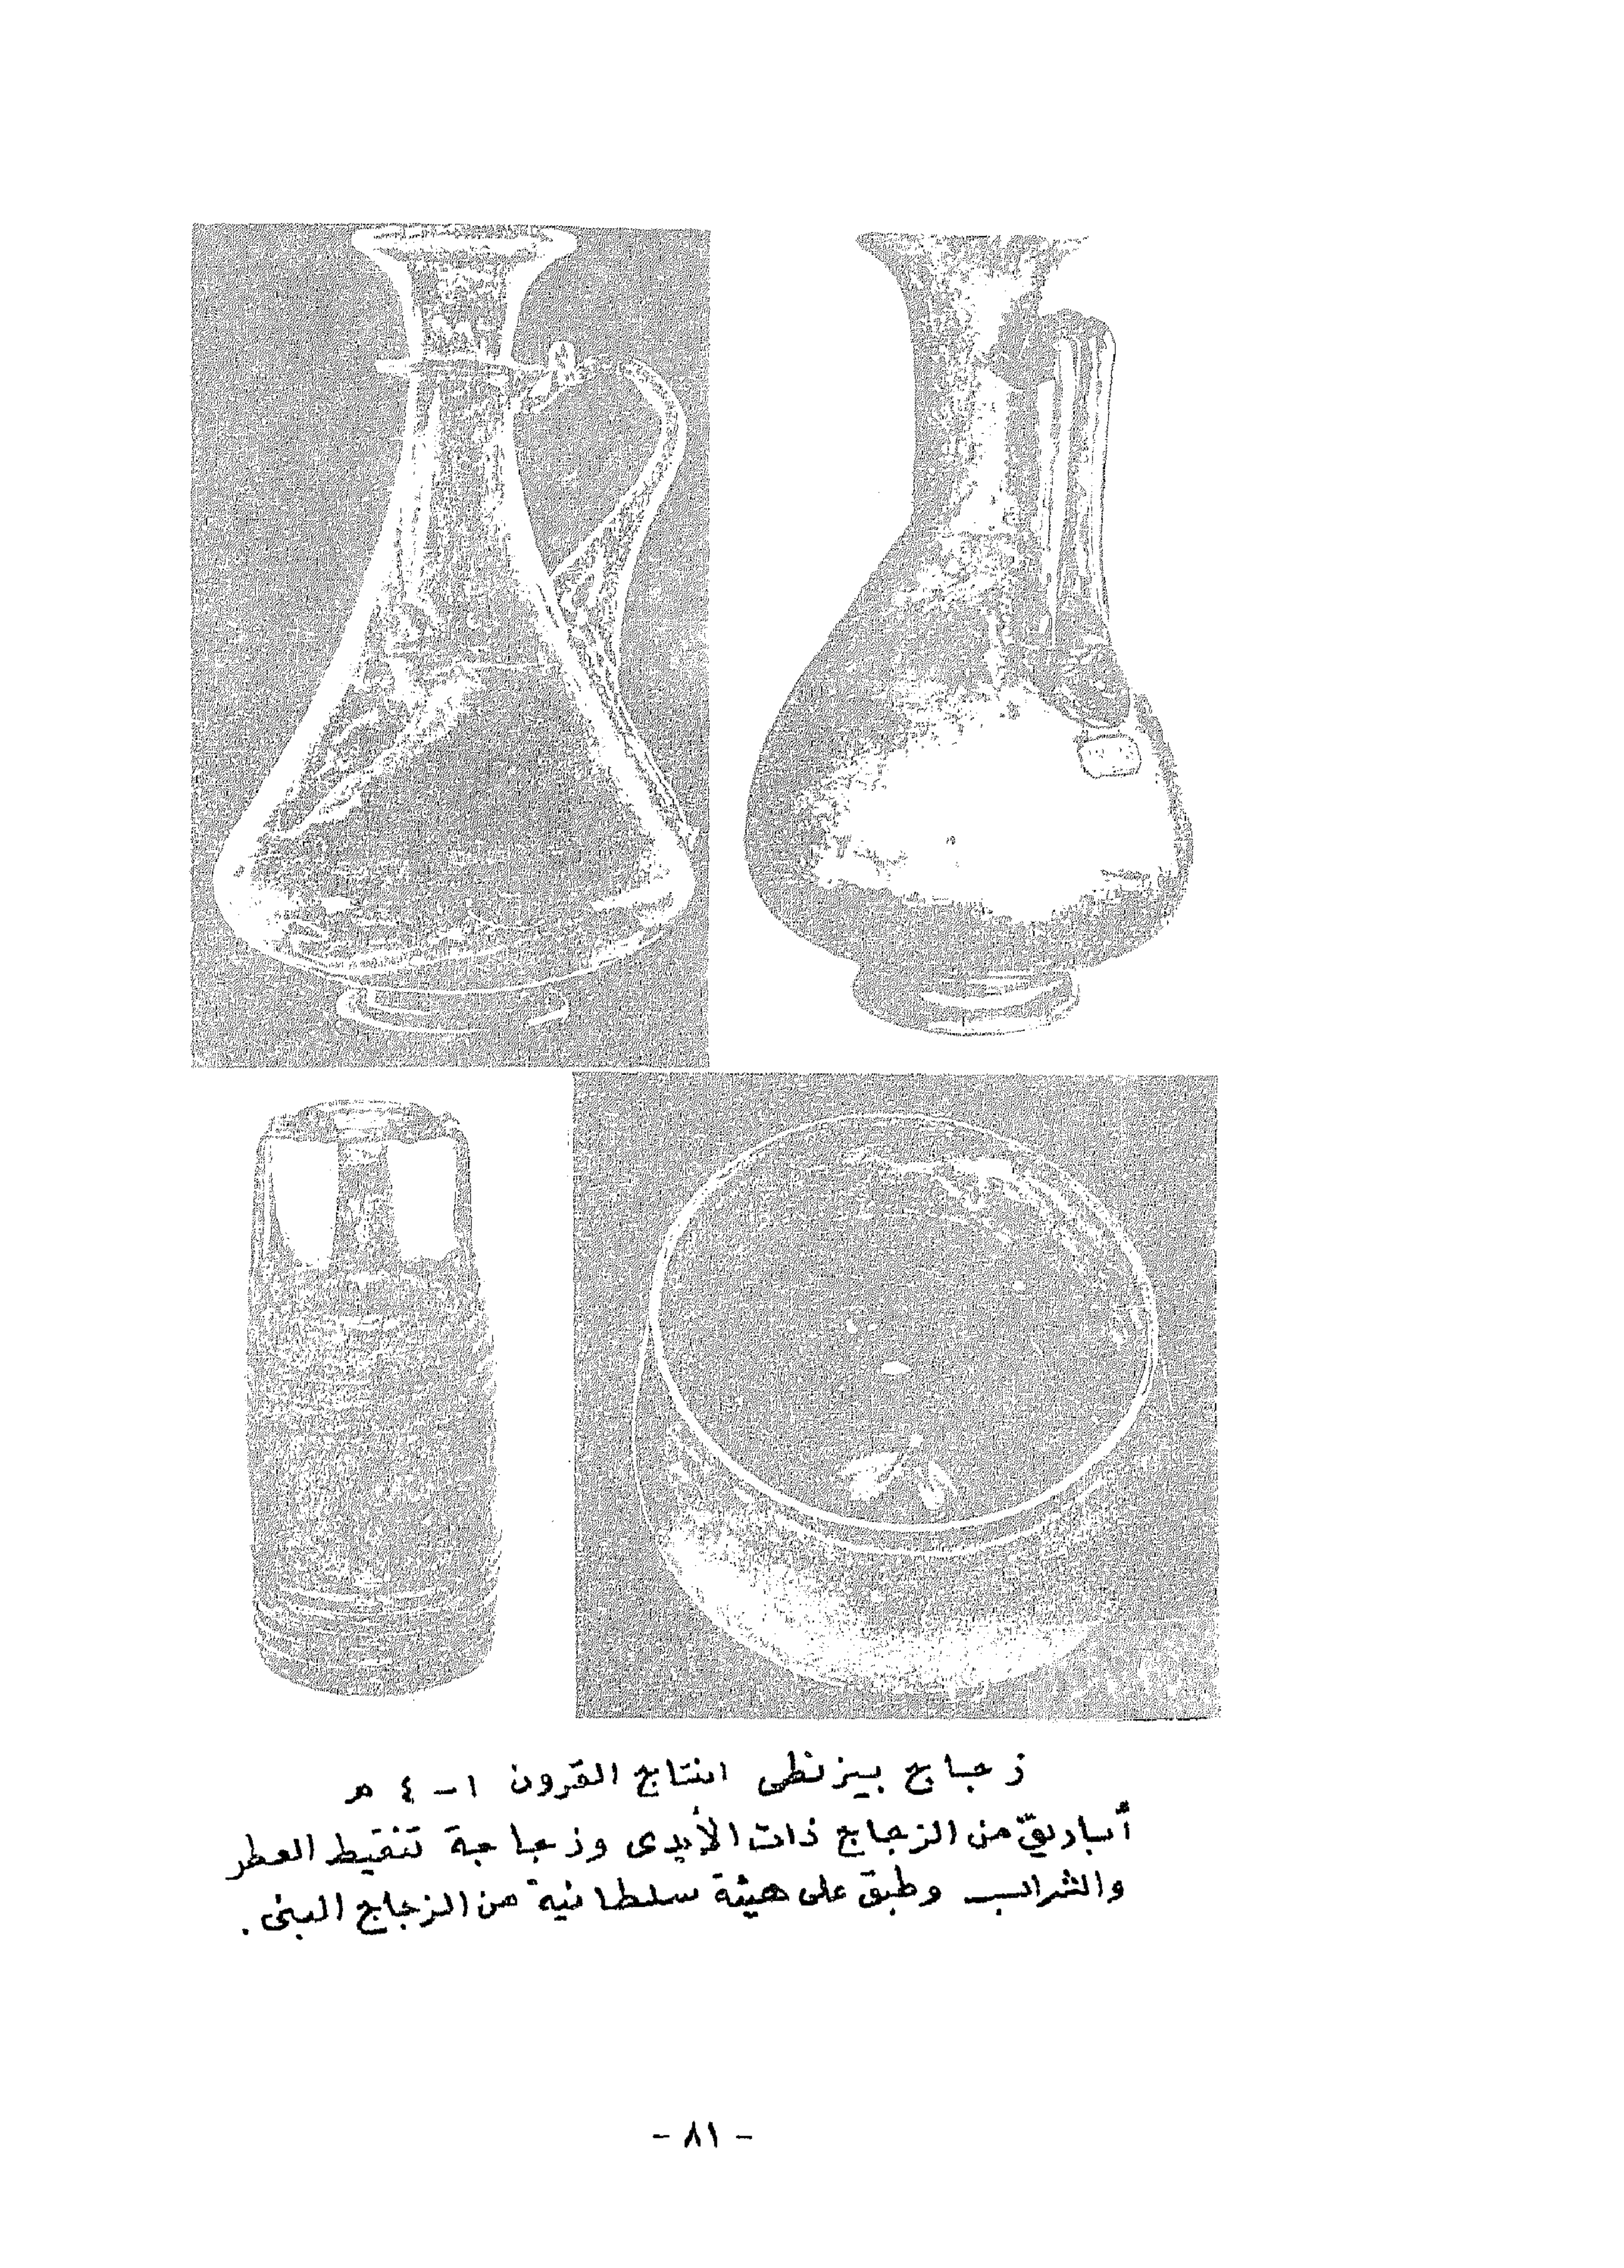 زجاج بيزنطى انتاج القرون ١ - ٤ هـ
أباريق من الزجاج ذات الأيدى وزجاجة تنقيط العطر
والشراب وطبق على هيئة سلطانية من الزجاج البنى .
- ٨١ -